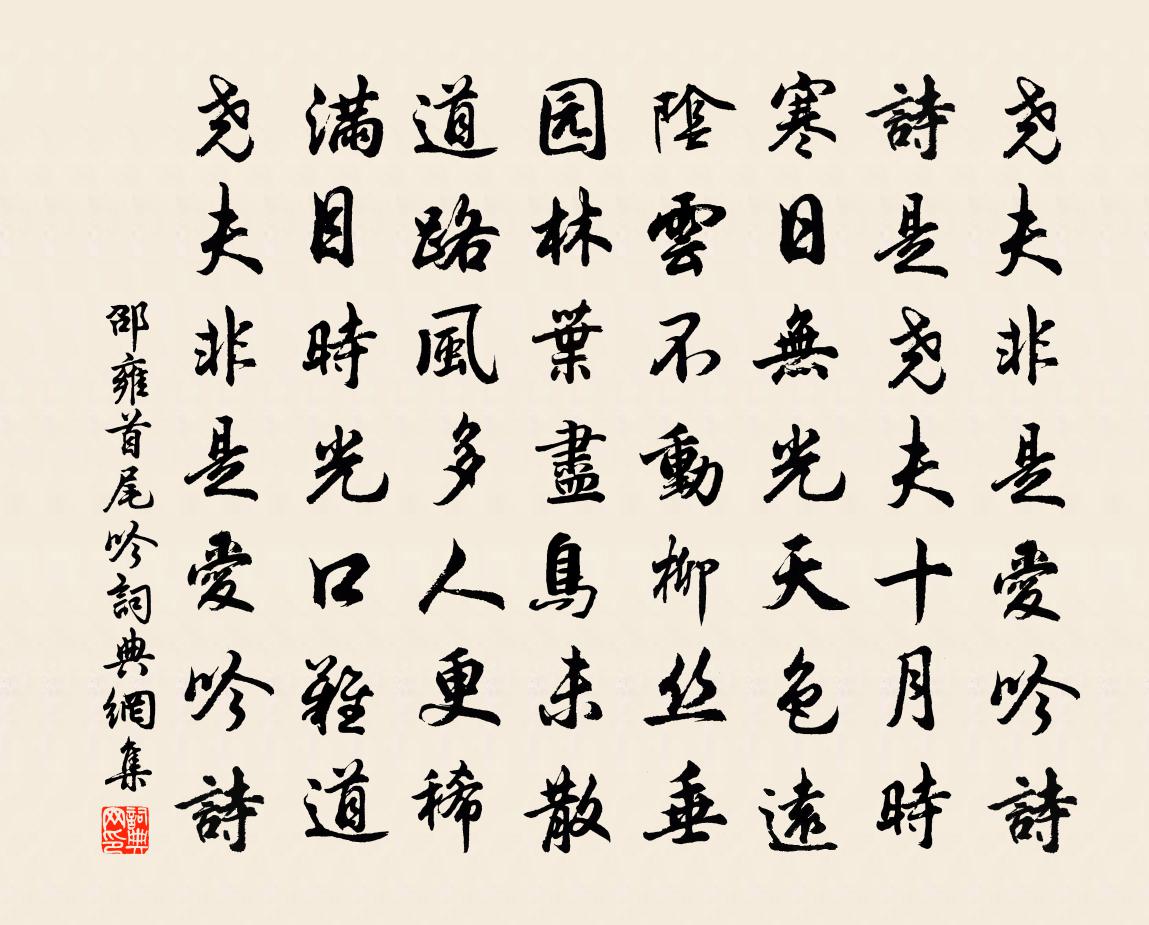 尧夫非是愛吟詩
詩是尧夫十月時
寒日無光天色遠
陰雲不動柳丝垂
园林葉盡鳥未散
道路風多人更稀
滿目時光口難道
尧夫非是愛吟詩
邵雍首尾吟詞典網集
詞典网印